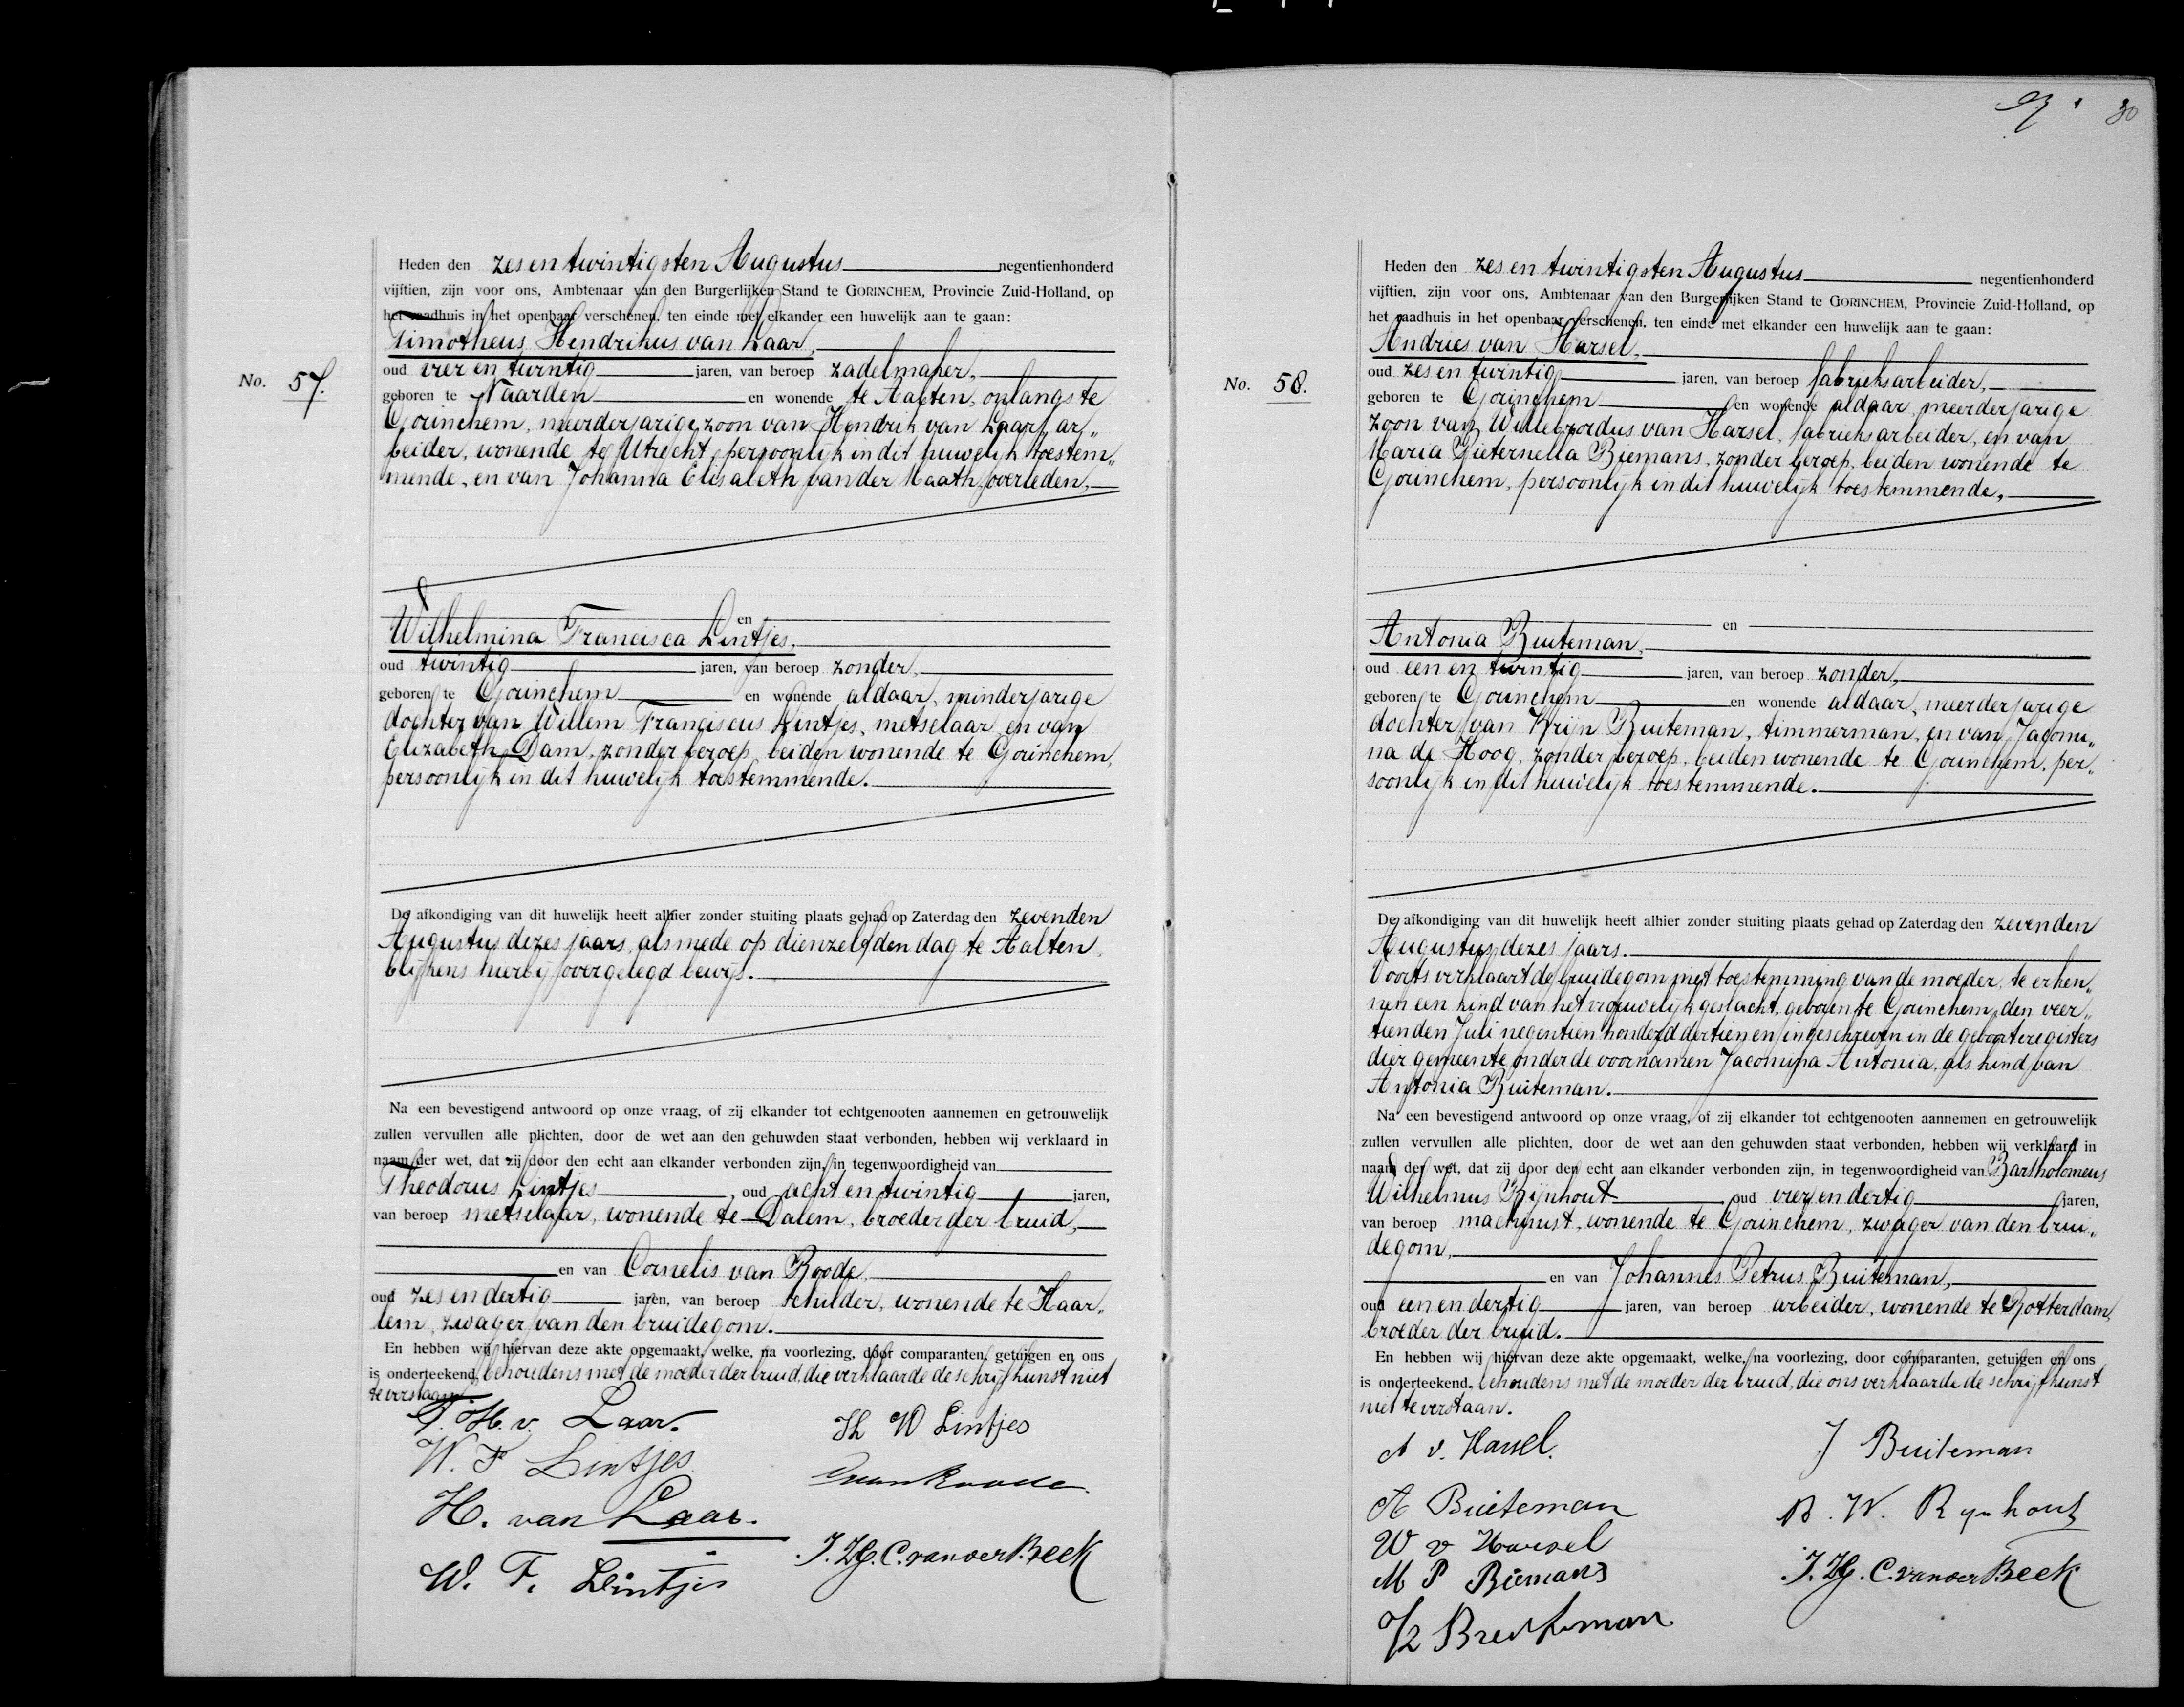 30
No. 57.
Heden den zes en twintigsten Augustus negentienhonderd
vijftien, zijn voor ons, Ambtenaar van den Burgerlijken Stand te GORINCHEM, Provincie Zuid-Holland, op
het raadhuis in het openbaar verschenen, ten einde met elkander een huwelijk aan te gaan:
Timotheus Hendrikus van Laar,
oud vier en twintig jaren, van beroep zadelmaker,
geboren te Naarden en wonende te Aalten, onlangs te
Gorinchem, meerderjarige zoon van Hendrik van Laar, ar„
beider, wonende te Utrecht, persoonlijk in dit huwelijk toestem„
mende, en van Johanna Elisabeth van der Maath, overleden,
en
Wilhelmina Francisca Lintjes,
oud twintig jaren, van beroep zonder,
geboren te Gorinchem en wonende aldaar, minderjarige
dochter van Willem Franciscus Lintjes, metselaar en van
Elizabeth Dam, zonder beroep, beiden wonende te Gorinchem,
persoonlijk in dit huwelijk toestemmende.
De afkondiging van dit huwelijk heeft alhier zonder stuiting plaats gehad op Zaterdag den zevenden
Augustus dezes jaars, alsmede op dienzelfden dag te Aalten,
blijkens hierbij overgelegd bewijs.
Na een bevestigend antwoord op onze vraag, of zij elkander tot echtgenooten aannemen en getrouwelijk
zullen vervullen alle plichten, door de wet aan den gehuwden staat verbonden, hebben wij verklaard in
naam der wet, dat zij door den echt aan elkander verbonden zijn, in tegenwoordigheid van
Theodorus Lintjes, oud acht en twintig jaren,
van beroep metselaar, wonende te Dalem, broeder der bruid,
en van Cornelis van Roode,
oud zes en dertig jaren, van beroep schilder, wonende te Haar„
lem, zwager van den bruidegom.
En hebben wij hiervan deze akte opgemaakt, welke, na voorlezing, door comparanten, getuigen en ons
is onderteekend, behoudens met de moeder der bruid, die verklaarde de schrijfkunst niet
te verstaan.
T. H. v. Laar.
W. F Lintjes
H. van Laar.
W. F. Lintjes
Th W Lintjes
C van Roode
J. H. C. van der Beek
No. 58.
Heden den zes en twintigsten Augustus negentienhonderd
vijftien, zijn voor ons, Ambtenaar van den Burgerlijken Stand te GORINCHEM, Provincie Zuid-Holland, op
het raadhuis in het openbaar verschenen, ten einde met elkander een huwelijk aan te gaan:
Andries van Harsel,
oud zes en twintig jaren, van beroep fabrieksarbeider,
geboren te Gorinchem en wonende aldaar, meerderjarige
zoon van Willebrordus van Harsel, fabrieksarbeider, en van
Maria Pieternella Biemans, zonder beroep, beiden wonende te
Gorinchem, persoonlijk in dit huwelijk toestemmende,
en
Antonia Buiteman,
oud een en twintig jaren, van beroep zonder,
geboren te Gorinchem en wonende aldaar, meerderjarige
dochter van Krijn Buiteman, timmerman, en van Jacomi„
na de Hoog, zonder beroep, beiden wonende te Gorinchem, per„
soonlijk in dit huwelijk toestemmende.
De afkondiging van dit huwelijk heeft alhier zonder stuiting plaats gehad op Zaterdag den zevenden
Augustus dezes jaars.
Voorts verklaart de bruidegom met toestemming van de moeder, te erken„
nen een kind van het vrouwelijk geslacht, geboren te Gorinchem, den veer„
tienden Juli negentien honderd dertien en ingeschreven in de geboorteregisters
dier gemeente onder de voornamen Jacomina Antonia, als kind van
Antonia Buiteman.
Na een bevestigend antwoord op onze vraag, of zij elkander tot echtgenooten aannemen en getrouwelijk
zullen vervullen alle plichten, door de wet aan den gehuwden staat verbonden, hebben wij verklaard in
naam der wet, dat zij door den echt aan elkander verbonden zijn, in tegenwoordigheid van Bartholomeus
Wilhelmus Rijnhout, oud vier en dertig jaren,
van beroep machinist, wonende te Gorinchem, zwager van den brui„
degom,
en van Johannes Petrus Buiteman,
oud een en dertig jaren, van beroep arbeider, wonende te Rotterdam,
broeder der bruid.
En hebben wij hiervan deze akte opgemaakt, welke, na voorlezing, door comparanten, getuigen en ons
is onderteekend, behoudens met de moeder der bruid, die ons verklaarde de schrijfkunst
niet te verstaan.
A v. Harsel.
A Buiteman
W v Harsel
M P Biemans
J Buiteman
B. W. Rynhout
J. H. C. van der Beek